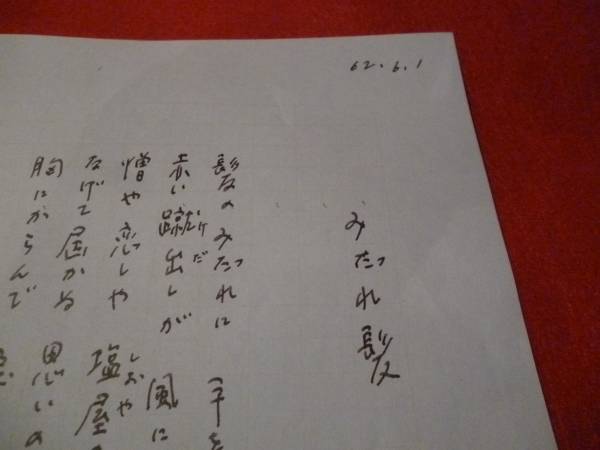 62.6.1
みだれ髪
髪のみだれに 手を
けだ
赤い蹴出しが 風に
しおや
憎や恋しや 塩屋
なげて届かぬ 思いの
胸にからんで